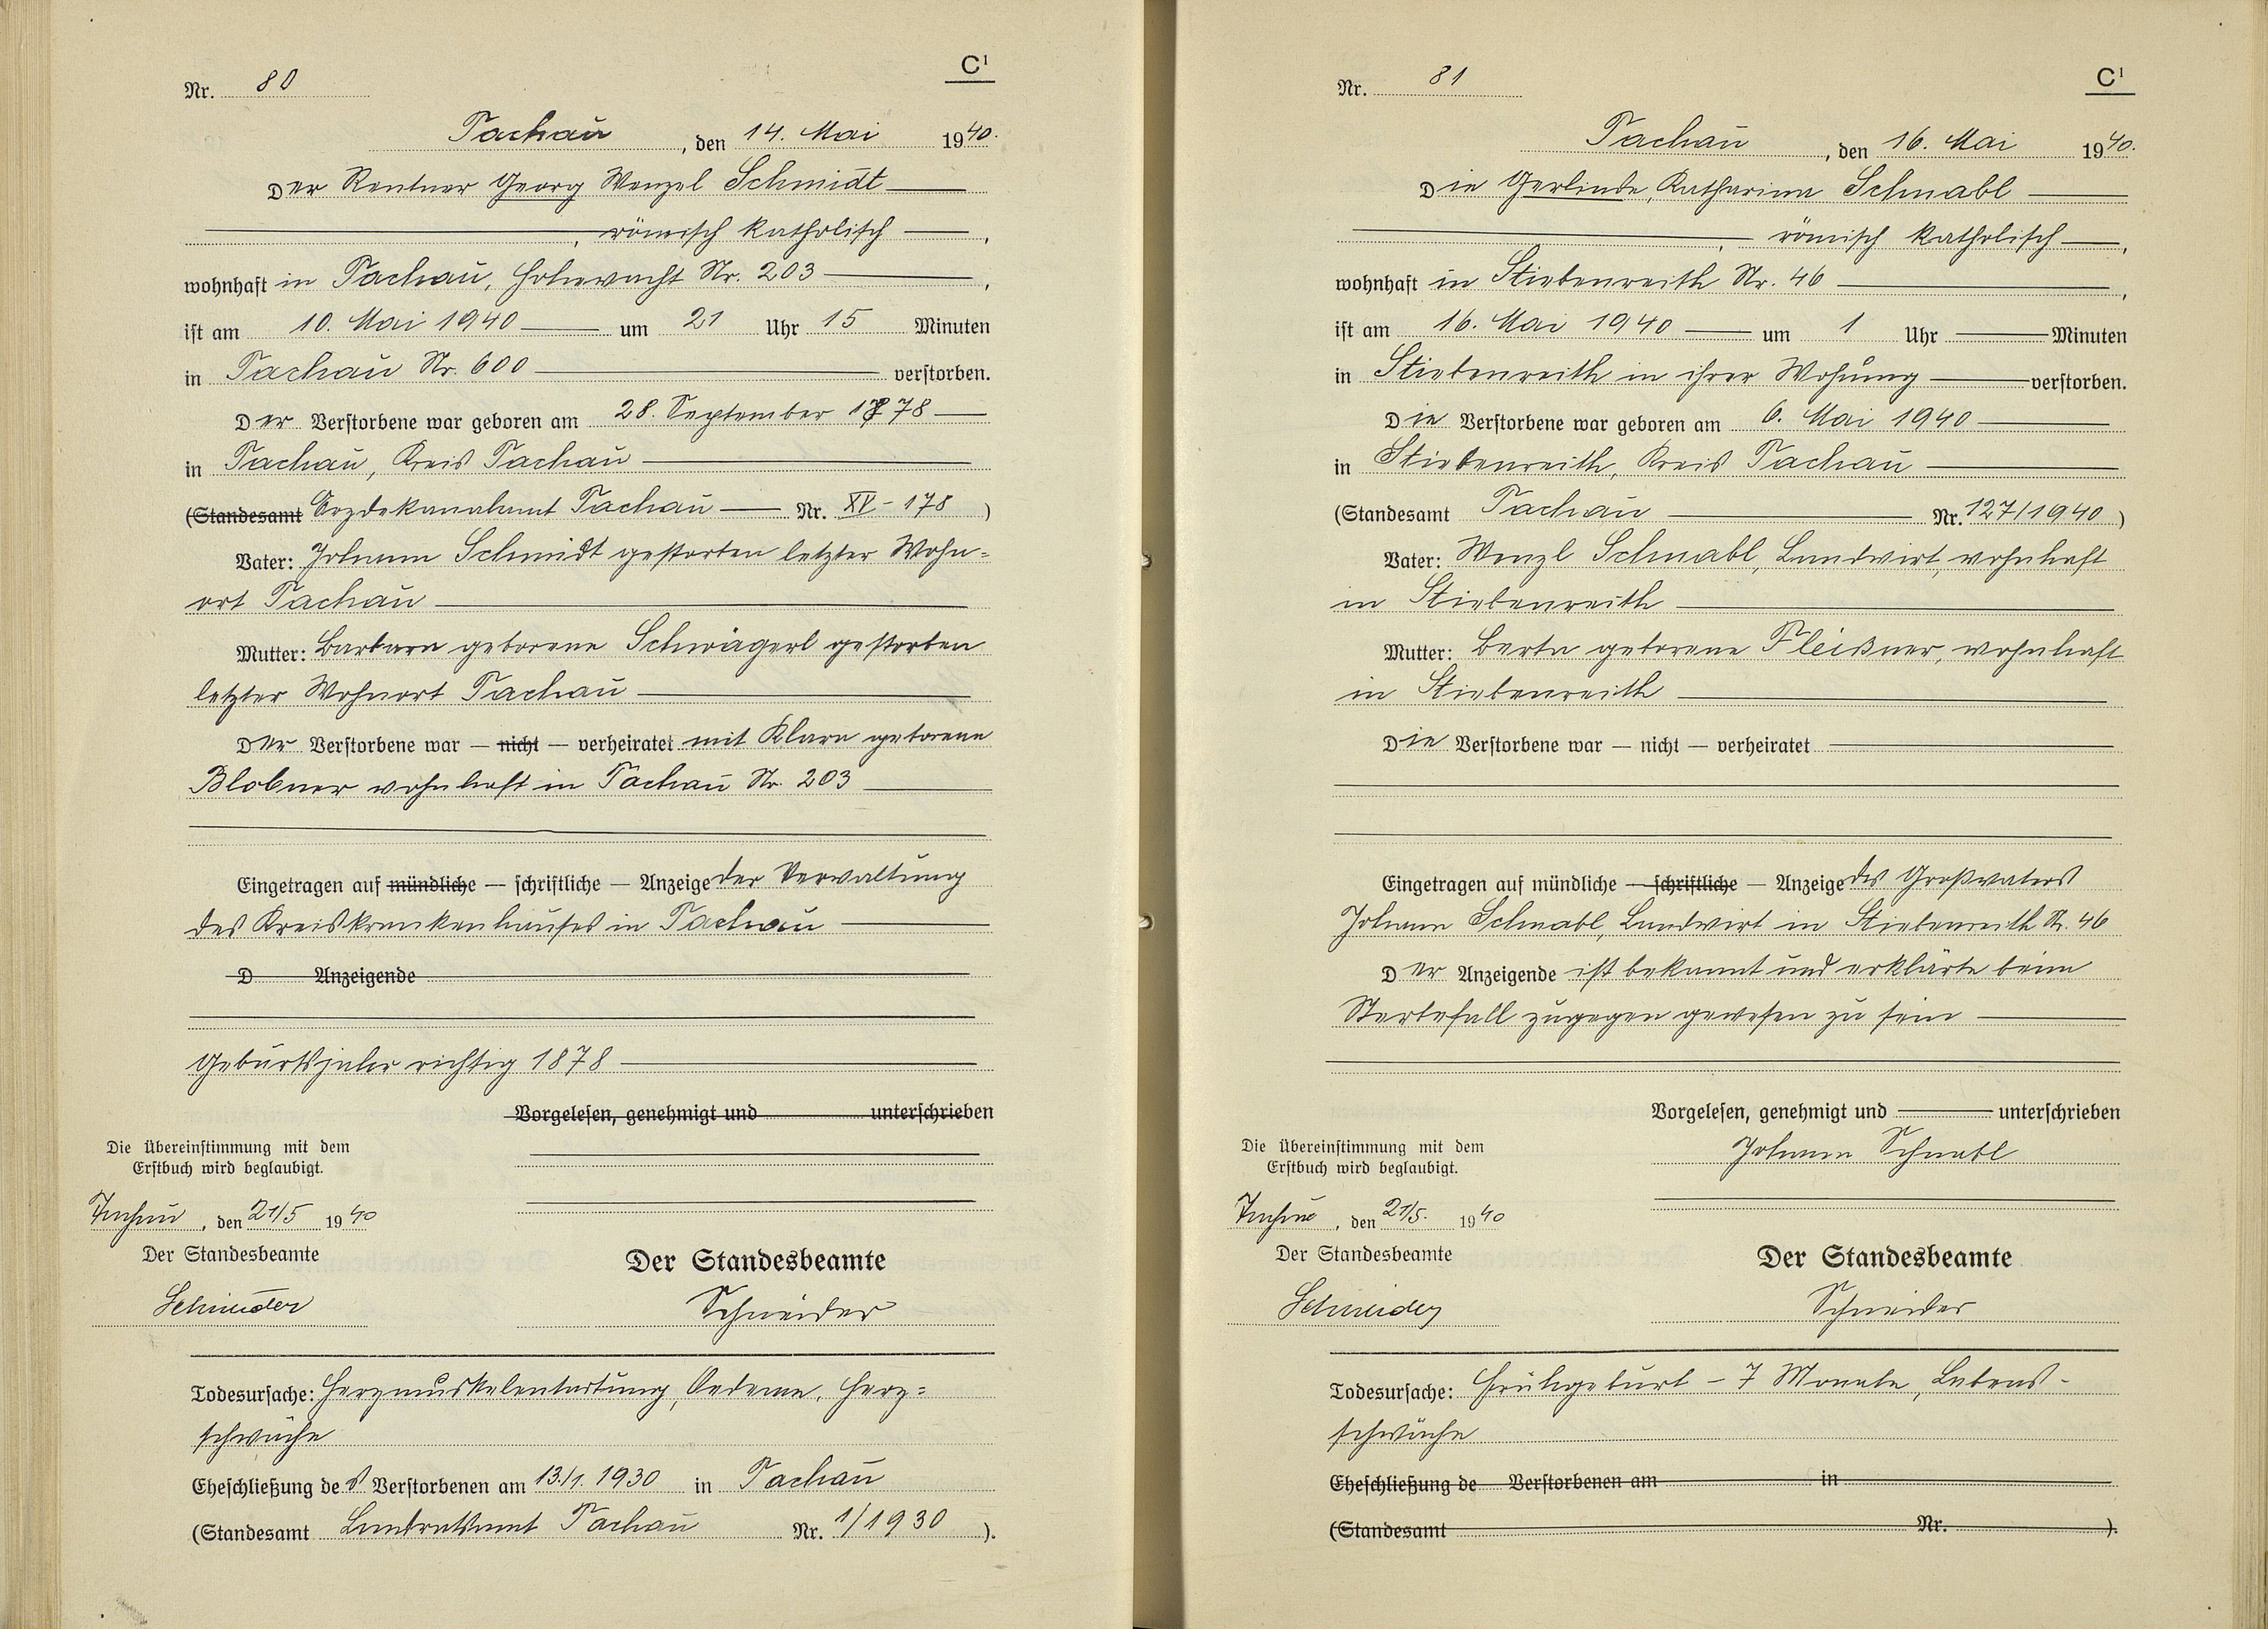 C¹
Nr. 80
Tachau, den 14. Mai 1940.
Der Rentner Georg Wenzel Schmidt
, römisch katholisch,
wohnhaft in Tachau, Hohewacht Nr. 203,
ist am 10. Mai 1940 um 21 Uhr 15 Minuten
in Tachau Nr. 600 verstorben.
Der Verstorbene war geboren am 28. September 1878
in Tachau, Kreis Tachau
(Standesamt Erzdekanalamt Tachau Nr. XV - 178)
Vater: Johann Schmidt gestorben letzter Wohn=
ort Tachau
Mutter: Barbara geborene Schwägerl gestorben
letzter Wohnort Tachau
Der Verstorbene war — nicht — verheiratet mit Klara geborene
Blobner wohnhaft in Tachau Nr. 203
Eingetragen auf mündliche — schriftliche — Anzeige der Verwaltung
des Kreiskrankenhauses in Tachau
D Anzeigende
Geburtsjahr richtig 1878
Vorgelesen, genehmigt und unterschrieben
Die Übereinstimmung mit dem
Erstbuch wird beglaubigt.
Tachau, den 21/5 1940
Der Standesbeamte
Schneider
Der Standesbeamte
Schneider
Todesursache: Herzmuskelentartung, Oedeme, Herz=
schwäche
Eheschließung des Verstorbenen am 13./1. 1930 in Tachau
(Standesamt Landratsamt Tachau Nr. 1/1930).
C¹
Nr. 81
Tachau, den 16. Mai 1940.
Die Gerlinde, Katharina Schnabl
, römisch katholisch,
wohnhaft in Stiebenreith Nr. 46,
ist am 16. Mai 1940 um 1 Uhr Minuten
in Stiebenreith in ihrer Wohnung verstorben.
Die Verstorbene war geboren am 6. Mai 1940
in Stiebenreith, Kreis Tachau
(Standesamt Tachau Nr. 127/1940)
Vater: Wenzl Schnabl, Landwirt, wohnhaft
in Stiebenreith
Mutter: Berta geborene Pleißner, wohnhaft
in Stiebenreith
Die Verstorbene war — nicht — verheiratet
Eingetragen auf mündliche — schriftliche — Anzeige des Großvaters
Johann Schnabl, Landwirt in Stiebenreith Nr. 46
Der Anzeigende ist bekannt und erklärte beim
Sterbefall zugegen gewesen zu sein
Vorgelesen, genehmigt und unterschrieben
Johann Schnabl
Die Übereinstimmung mit dem
Erstbuch wird beglaubigt.
Tachau, den 21/5. 1940
Der Standesbeamte
Schneider
Der Standesbeamte
Schneider
Todesursache: Frühgeburt - 7 Monate, Lebens-
schwäche
Eheschließung de Verstorbenen am in
(Standesamt Nr. ).